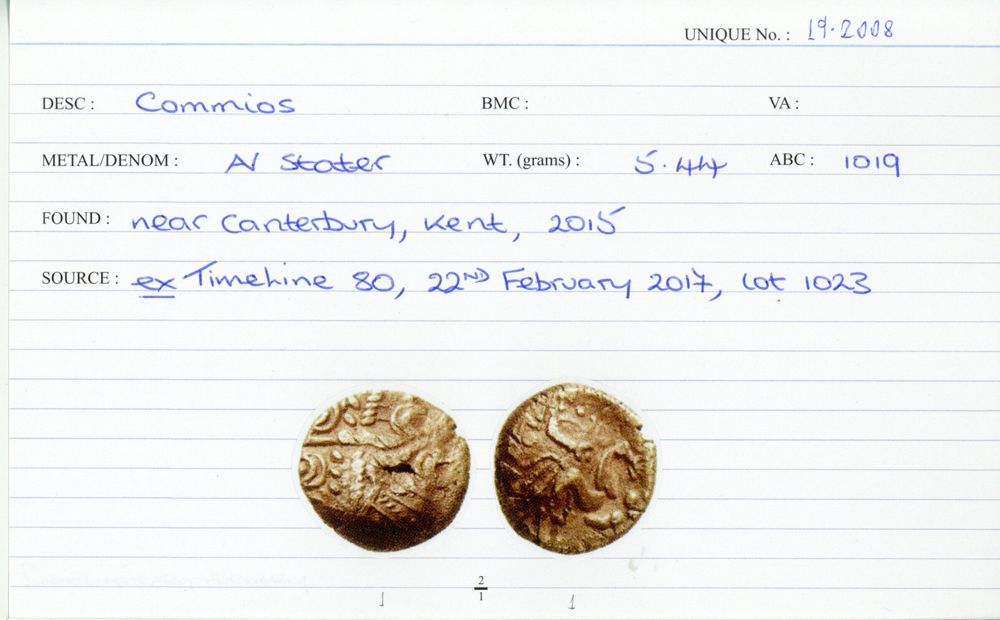 UNIQUE No. : 19.2008
DESC : Commios BMC : VA :
METAL/DENOM : AV Stater WT. (grams) : 5.44 ABC : 1019
FOUND : near Canterbury, Kent, 2015
SOURCE : ex Timeline 80, 22ND February 2017, Lot 1023
2
1
1 1